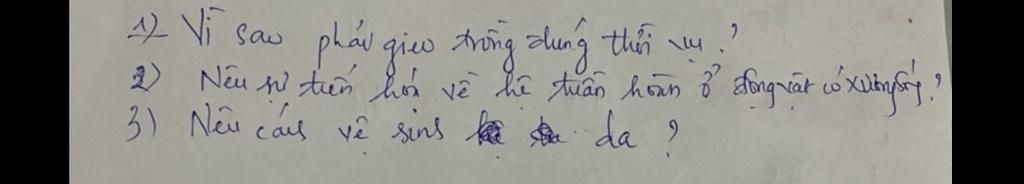 1) Vì sao phải gieo trồng đúng thời vụ ?
2) Nêu sự tiến hoá về hệ tuần hoàn ở động vật có xương sống ?
3) Nêu cách vệ sinh da ?